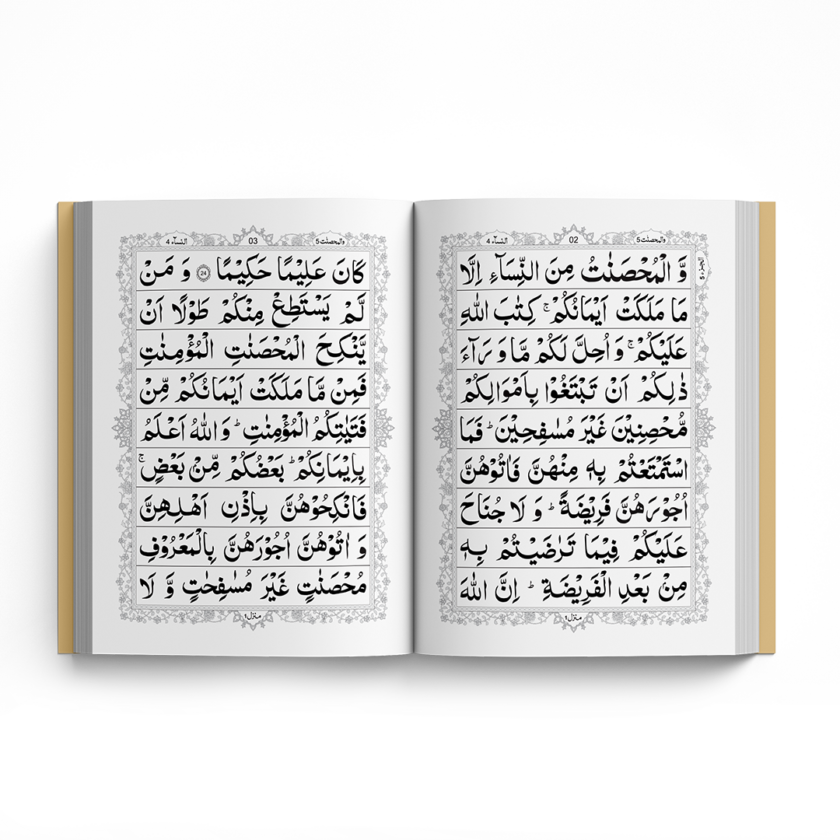 والمحصنٰت 5
02
النسآء 4
وَّ الْمُحْصَنٰتُ مِنَ النِّسَآءِ اِلَّا
مَا مَلَكَتْ اَيْمَانُكُمْ ۚ كِتٰبَ اللّٰهِ
عَلَيْكُمْ ۚ وَ اُحِلَّ لَكُمْ مَّا وَرَآءَ
ذٰلِكُمْ اَنْ تَبْتَغُوْا بِاَمْوَالِكُمْ
مُّحْصِنِيْنَ غَيْرَ مُسٰفِحِيْنَ ؕ فَمَا
اسْتَمْتَعْتُمْ بِهٖ مِنْهُنَّ فَاٰتُوْهُنَّ
اُجُوْرَهُنَّ فَرِيْضَةً ؕ وَ لَا جُنَاحَ
عَلَيْكُمْ فِيْمَا تَرٰضَيْتُمْ بِهٖ
مِنْۢ بَعْدِ الْفَرِيْضَةِ ؕ اِنَّ اللّٰهَ
منزل ۱
والمحصنٰت 5
03
النسآء 4
كَانَ عَلِيْمًا حَكِيْمًا 24 وَ مَنْ
لَّمْ يَسْتَطِعْ مِنْكُمْ طَوْلًا اَنْ
يَّنْكِحَ الْمُحْصَنٰتِ الْمُؤْمِنٰتِ
فَمِنْ مَّا مَلَكَتْ اَيْمَانُكُمْ مِّنْ
فَتَيٰتِكُمُ الْمُؤْمِنٰتِ ؕ وَ اللّٰهُ اَعْلَمُ
بِاِيْمَانِكُمْ ؕ بَعْضُكُمْ مِّنْۢ بَعْضٍ ۚ
فَانْكِحُوْهُنَّ بِاِذْنِ اَهْلِهِنَّ
وَ اٰتُوْهُنَّ اُجُوْرَهُنَّ بِالْمَعْرُوْفِ
مُحْصَنٰتٍ غَيْرَ مُسٰفِحٰتٍ وَّ لَا
منزل ۱